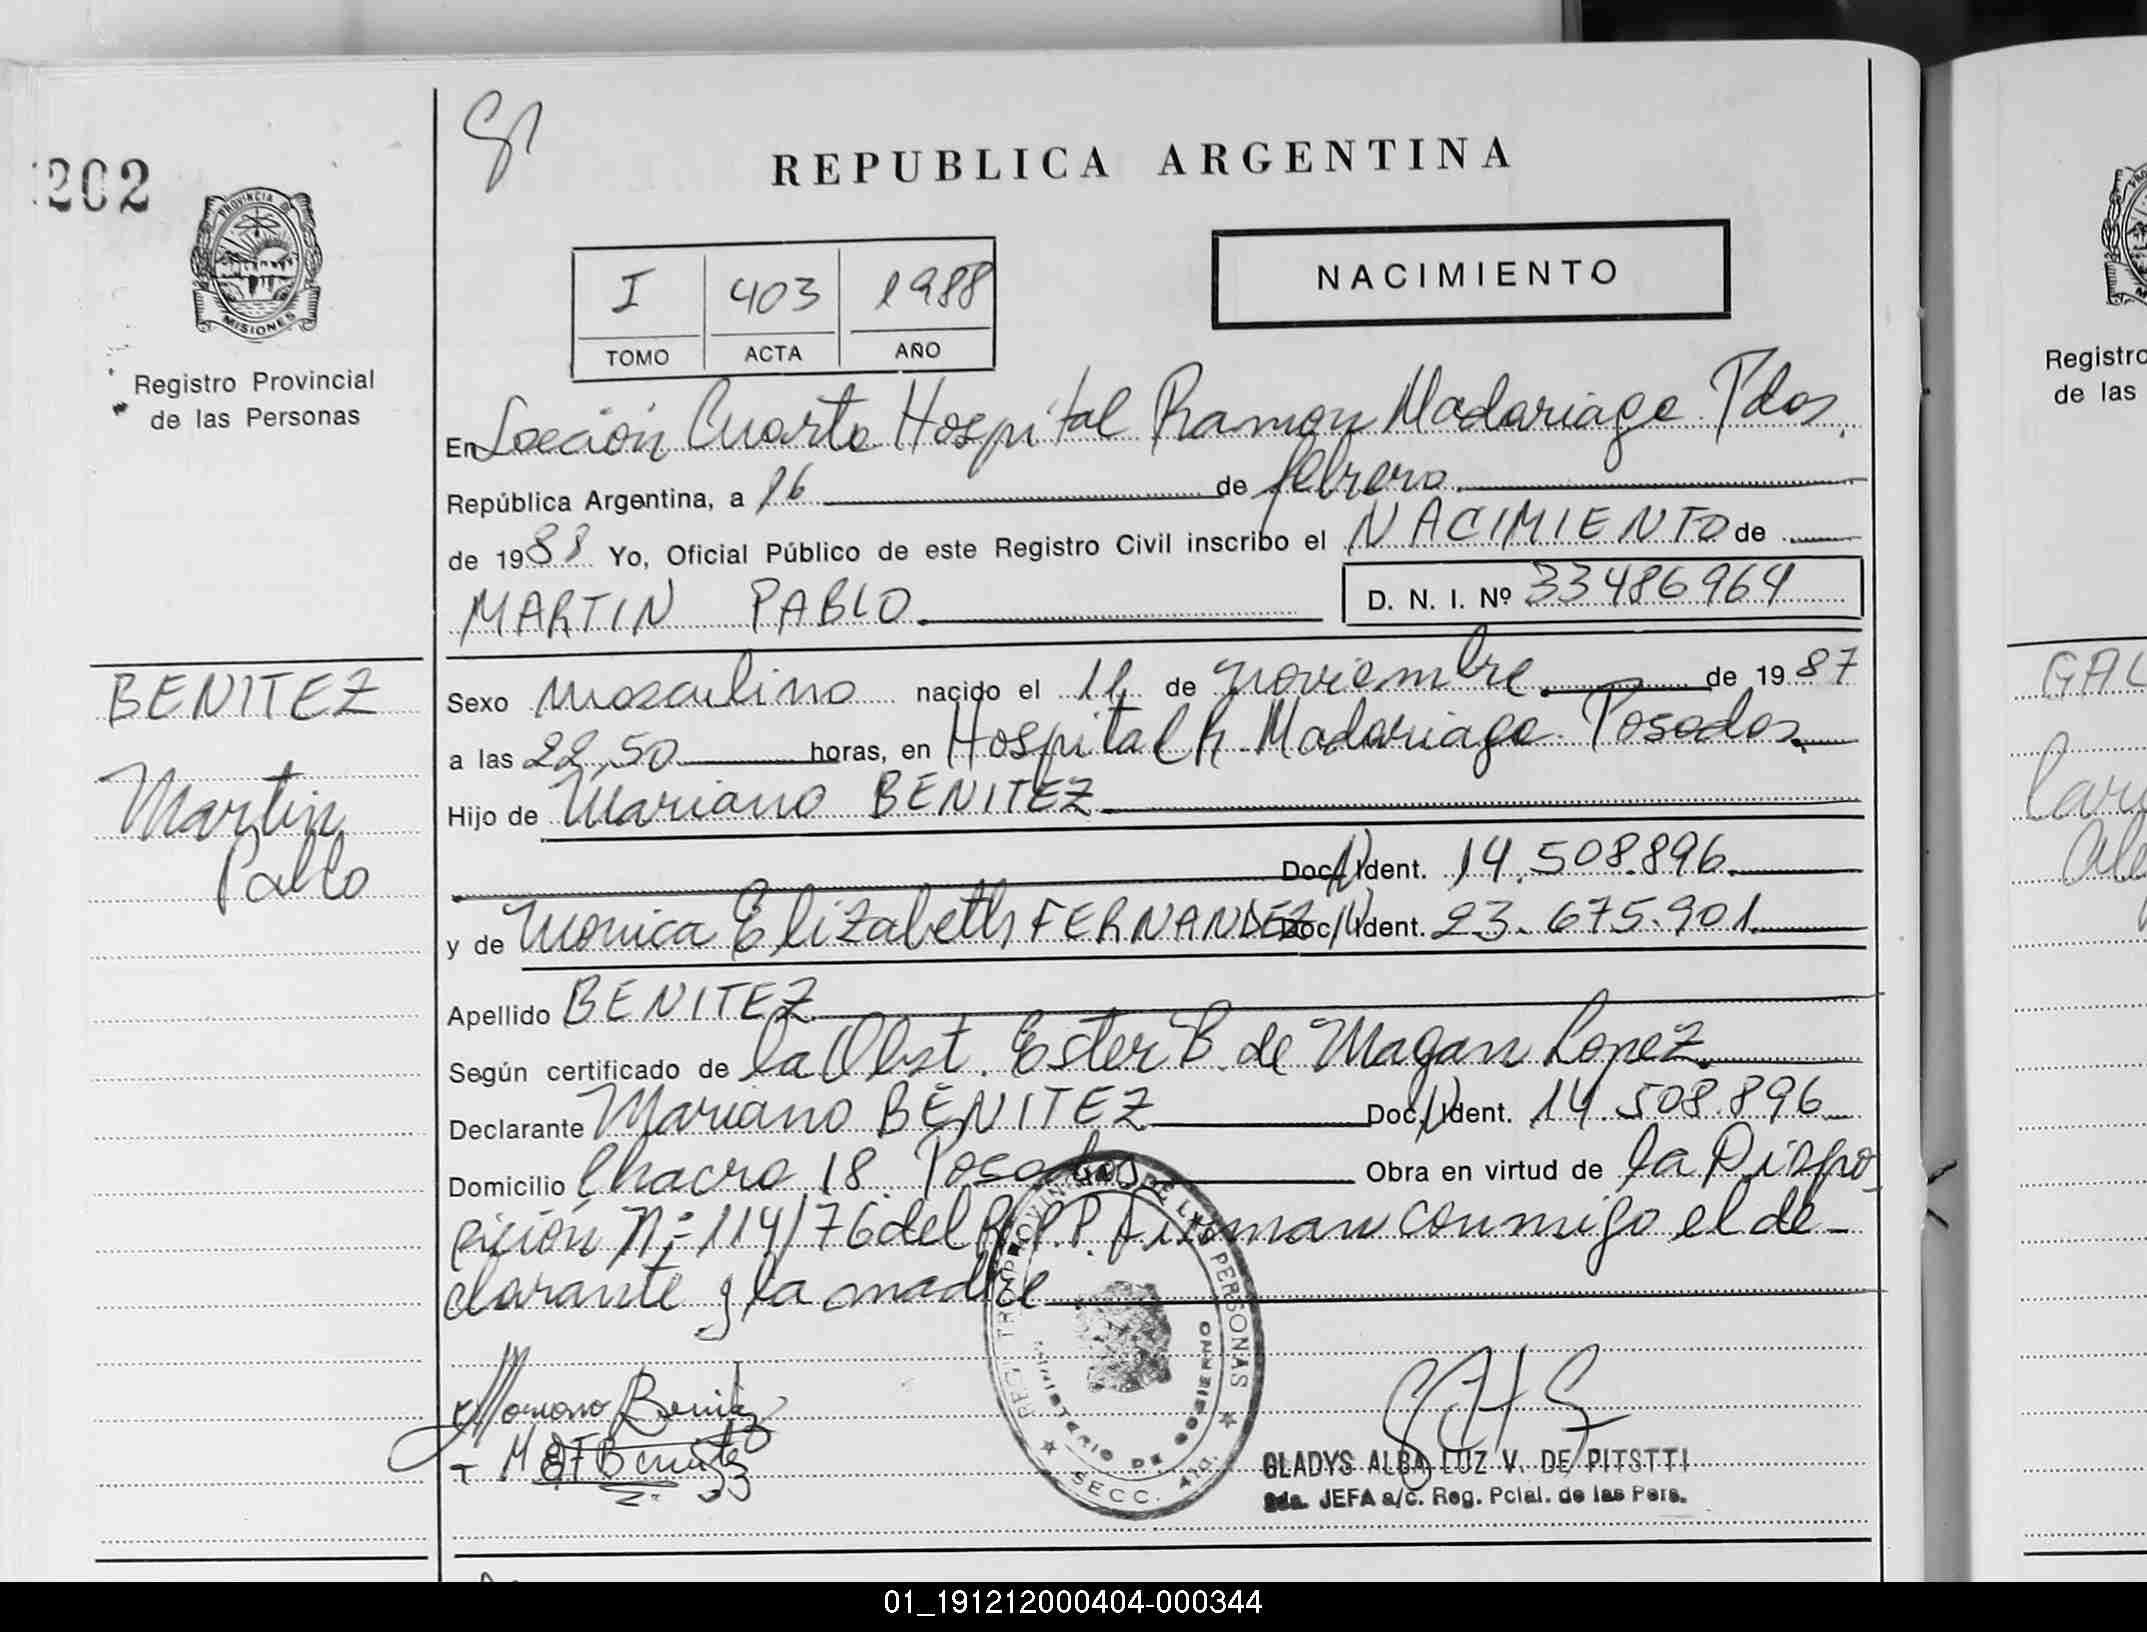 202
PROVINCIA DE
MISIONES
Registro Provincial
de las Personas
REPUBLICA ARGENTINA
NACIMIENTO
I 403 1988
TOMO ACTA AÑO
En Sección Cuarta Hospital Ramon Madariaga Pdas.
República Argentina, a 16 de febrero
de 1988 Yo, Oficial Público de este Registro Civil inscribo el NACIMIENTO de
MARTIN PABLO D. N. I. Nº 33486964
BENITEZ
Martin
Pablo
Sexo masculino nacido el 11 de noviembre de 1987
a las 22,50 horas, en Hospital R. Madariaga Posadas
Hijo de Mariano BENITEZ
Doc. Ident. 14.508.896
y de Monica Elizabeth FERNANDEZ Doc. Ident. 23.675.901
Apellido BENITEZ
Según certificado de la Obst. Ester B. de Magan Lopez
Declarante Mariano BENITEZ Doc. Ident. 14.508.896
Domicilio Chacra 18 Posadas Obra en virtud de la Dispo
sición Nº 114/76 del R.P.P. Firman conmigo el de-
clarante y la madre
Mariano Benitez
REGISTRO PROVINCIAL DE LAS PERSONAS
MINISTERIO DE GOBIERNO
SECC. 4ta.
GLADYS ALBA LUZ V. DE PITSTTI
2da. JEFA a/c. Reg. Pcial. de las Pers.
Registro
de las
GAL
01_191212000404-000344